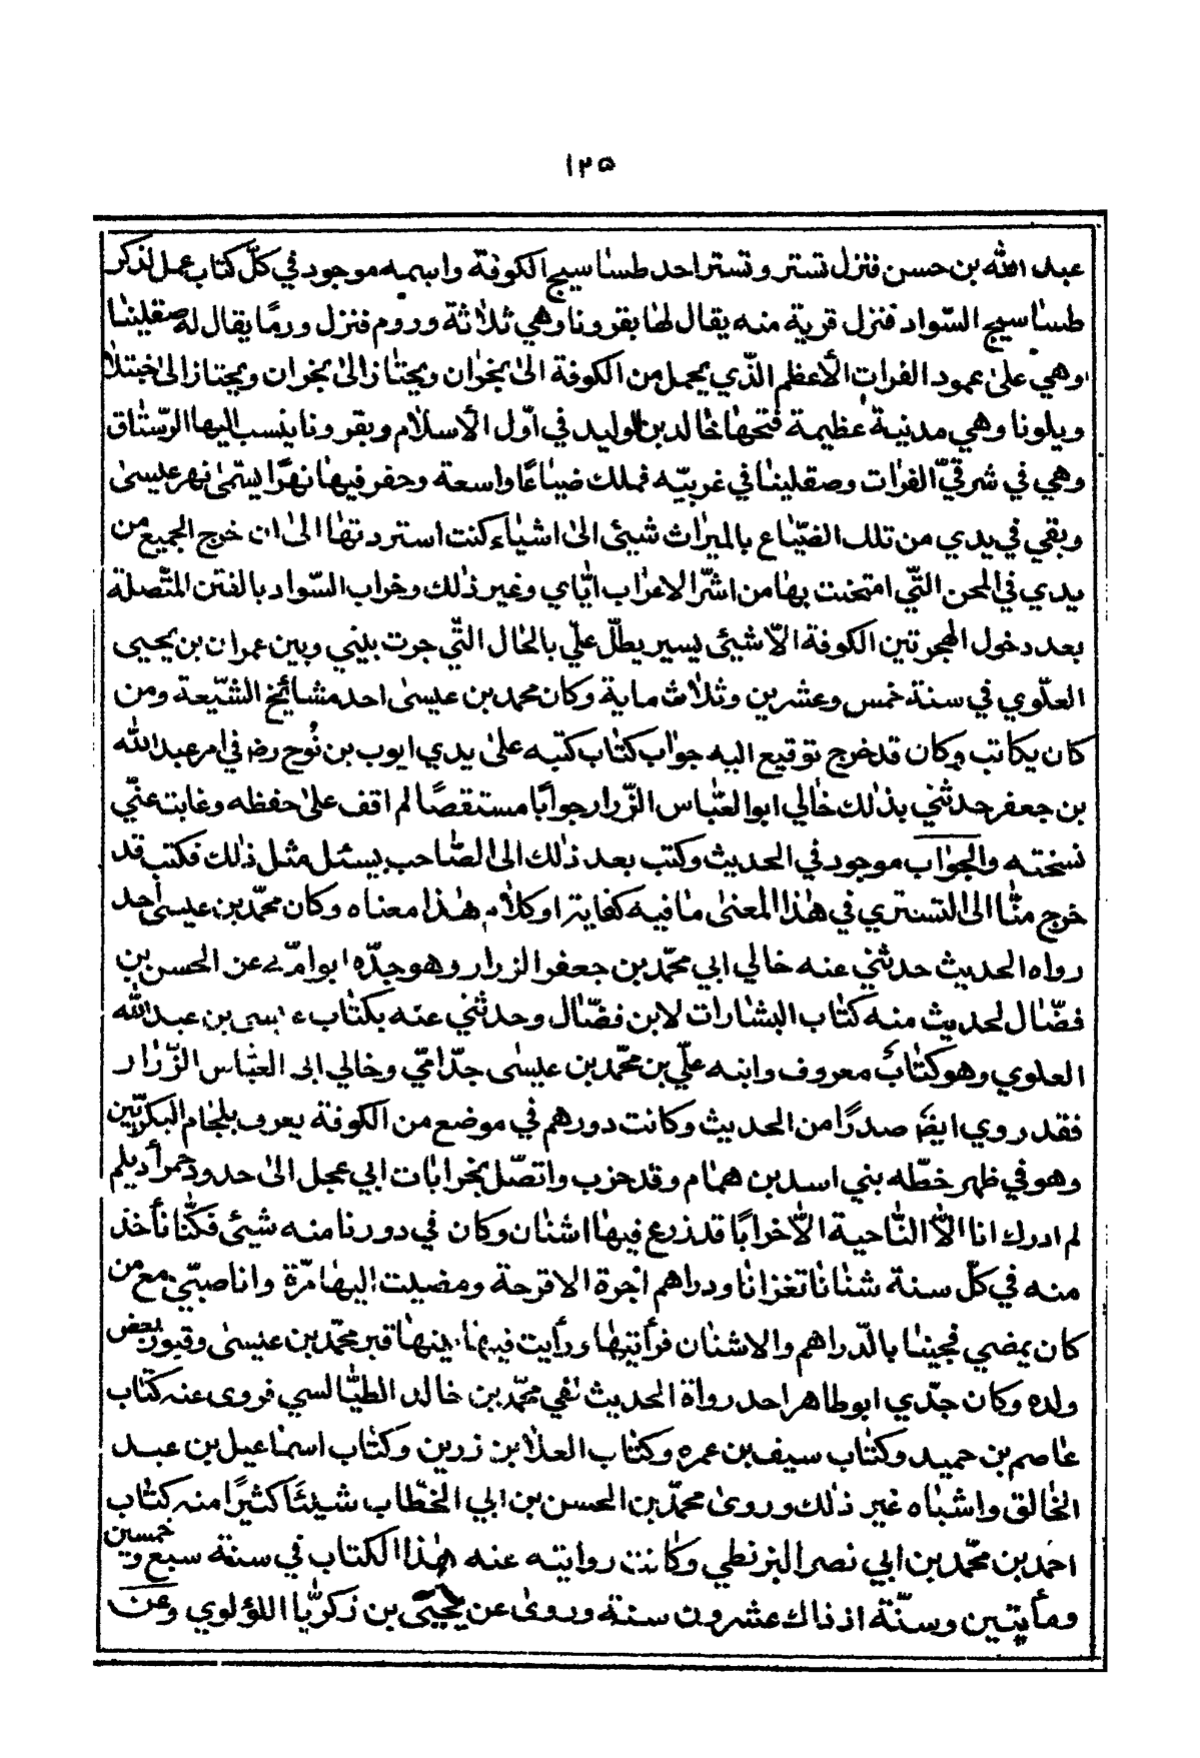 ١٢٥
عبد الله بن حسن فنزل تستر وتستر احد طساسيج الكوفة واسمه موجود في كلّ كتاب عمل لذكر
طساسيج السّواد فنزل قرية منه يقال لها بقرونا وهي ثلاثة وروم فنزل وربمّا يقال له صقلينا
وهي على عمود الفرات الأعظم الّذي يحمل من الكوفة الى نجران ويجتاز الى نجران ويجتاز الى ختلا
ويلونا وهي مدنية عظيمة فتحها خالد بن الوليد في اوّل الأسلام وبقرونا ينسب اليها الرّستاق
وهي في شرقيّ الفرات وصقلينا في غربيّه فملك ضياعًا واسعة وحفر فيها نهرًا يسمّى نهر عيسى
وبقي في يدي من تلك الضّياع بالميراث شيئ الى اشياء كنت استردتها الى ان خرج الجميع من
يدي في المحن الّتي امتحنت بها من اشرّ الاعراب ايّاي وغير ذلك وخراب السّواد بالفتن المتّصلة
بعد دخول الهجرتين الكوفة الّا شيئ يسير يطلّ علّي بالحال الّتي جرت بيني وبين عمران بن يحيى
العلّوي في سنة خمس وعشرين وثلاث ماية وكان محمد بن عيسى احد مشائخ الشّيعة ومن
كان يكاتب وكان قد خرج توقيع اليه جواب كتاب كتبه على يدي ايوب بن نُوح رض في امر عبد الله
بن جعفر حدثني بذلك خالي ابو العبّاس الزّرار جوابًا مستقصًا لم اقف على حفظه وغابت عنّي
نسخته والجواب موجود في الحديث وكتب بعد ذلك الى الصّاحب يسئل مثل ذلك فكتب قد
خرج منّا الى التستري في هذا المعنى ما فيه كفاية او كلام هذا معناه وكان محمّد بن عيسى احد
رواه الحديث حدثني عنه خالي ابي محمّد بن جعفر الزرار وهو جدّه ابو امّه عن الحسن بن
فضّال لحديث منه كتاب البشارات لابن فضّال وحدثني عنه بكتاب بن عبد الله
العلوي وهو كتاب معروف وابنه علّي بن محمّد بن عيسى جدّ امّي وخالي ابي العبّاس الزّرار
فقد روي ايض صدرًا من الحديث وكانت دورهم في موضع من الكوفة يعرف بلجام البكريّين
وهو في ظهر خطّه بني اسد بن همام وقد خرب واتصّل بخرابات ابي عجل الى حدود حمرأ ديلم
لم ادرك انا الّا النّاحية الّا خرابًا قد زرع فيها اشنان وكان في دورنا منه شيئ فكنّا نأخذ
منه في كلّ سنة شنانا تغزانا ودراهم اجرة الاقرحة ومضيت اليها مرّة وانا صبّي مع من
كان يمضي فجينا بالدّراهم والاشنان فرأيتها ورأيت فيها قبر محمّد بن عيسى وقبور بعض
ولده وكان جدّي ابو طاهر احد رواة الحديث نفي محمّد بن خالد الطيّالسي فروى عنه كتاب
عاصم بن حميد وكتاب سيف بن عمره وكتاب العلا بن زرين وكتاب اسماعيل بن عبد
الخالق واشباه غير ذلك وروى محمّد بن الحسن بن ابي الخطّاب شيئًا كثيرًا منه كتاب
احمد بن محمّد بن ابي نصر البزنطي وكانت روايته عنه هذا الكتاب في سنة سبع وخمسين
ومأيتين وسنّة اذ ذاك عشرون سنة وروى عن يحيى بن زكريّا اللؤلوي وعن